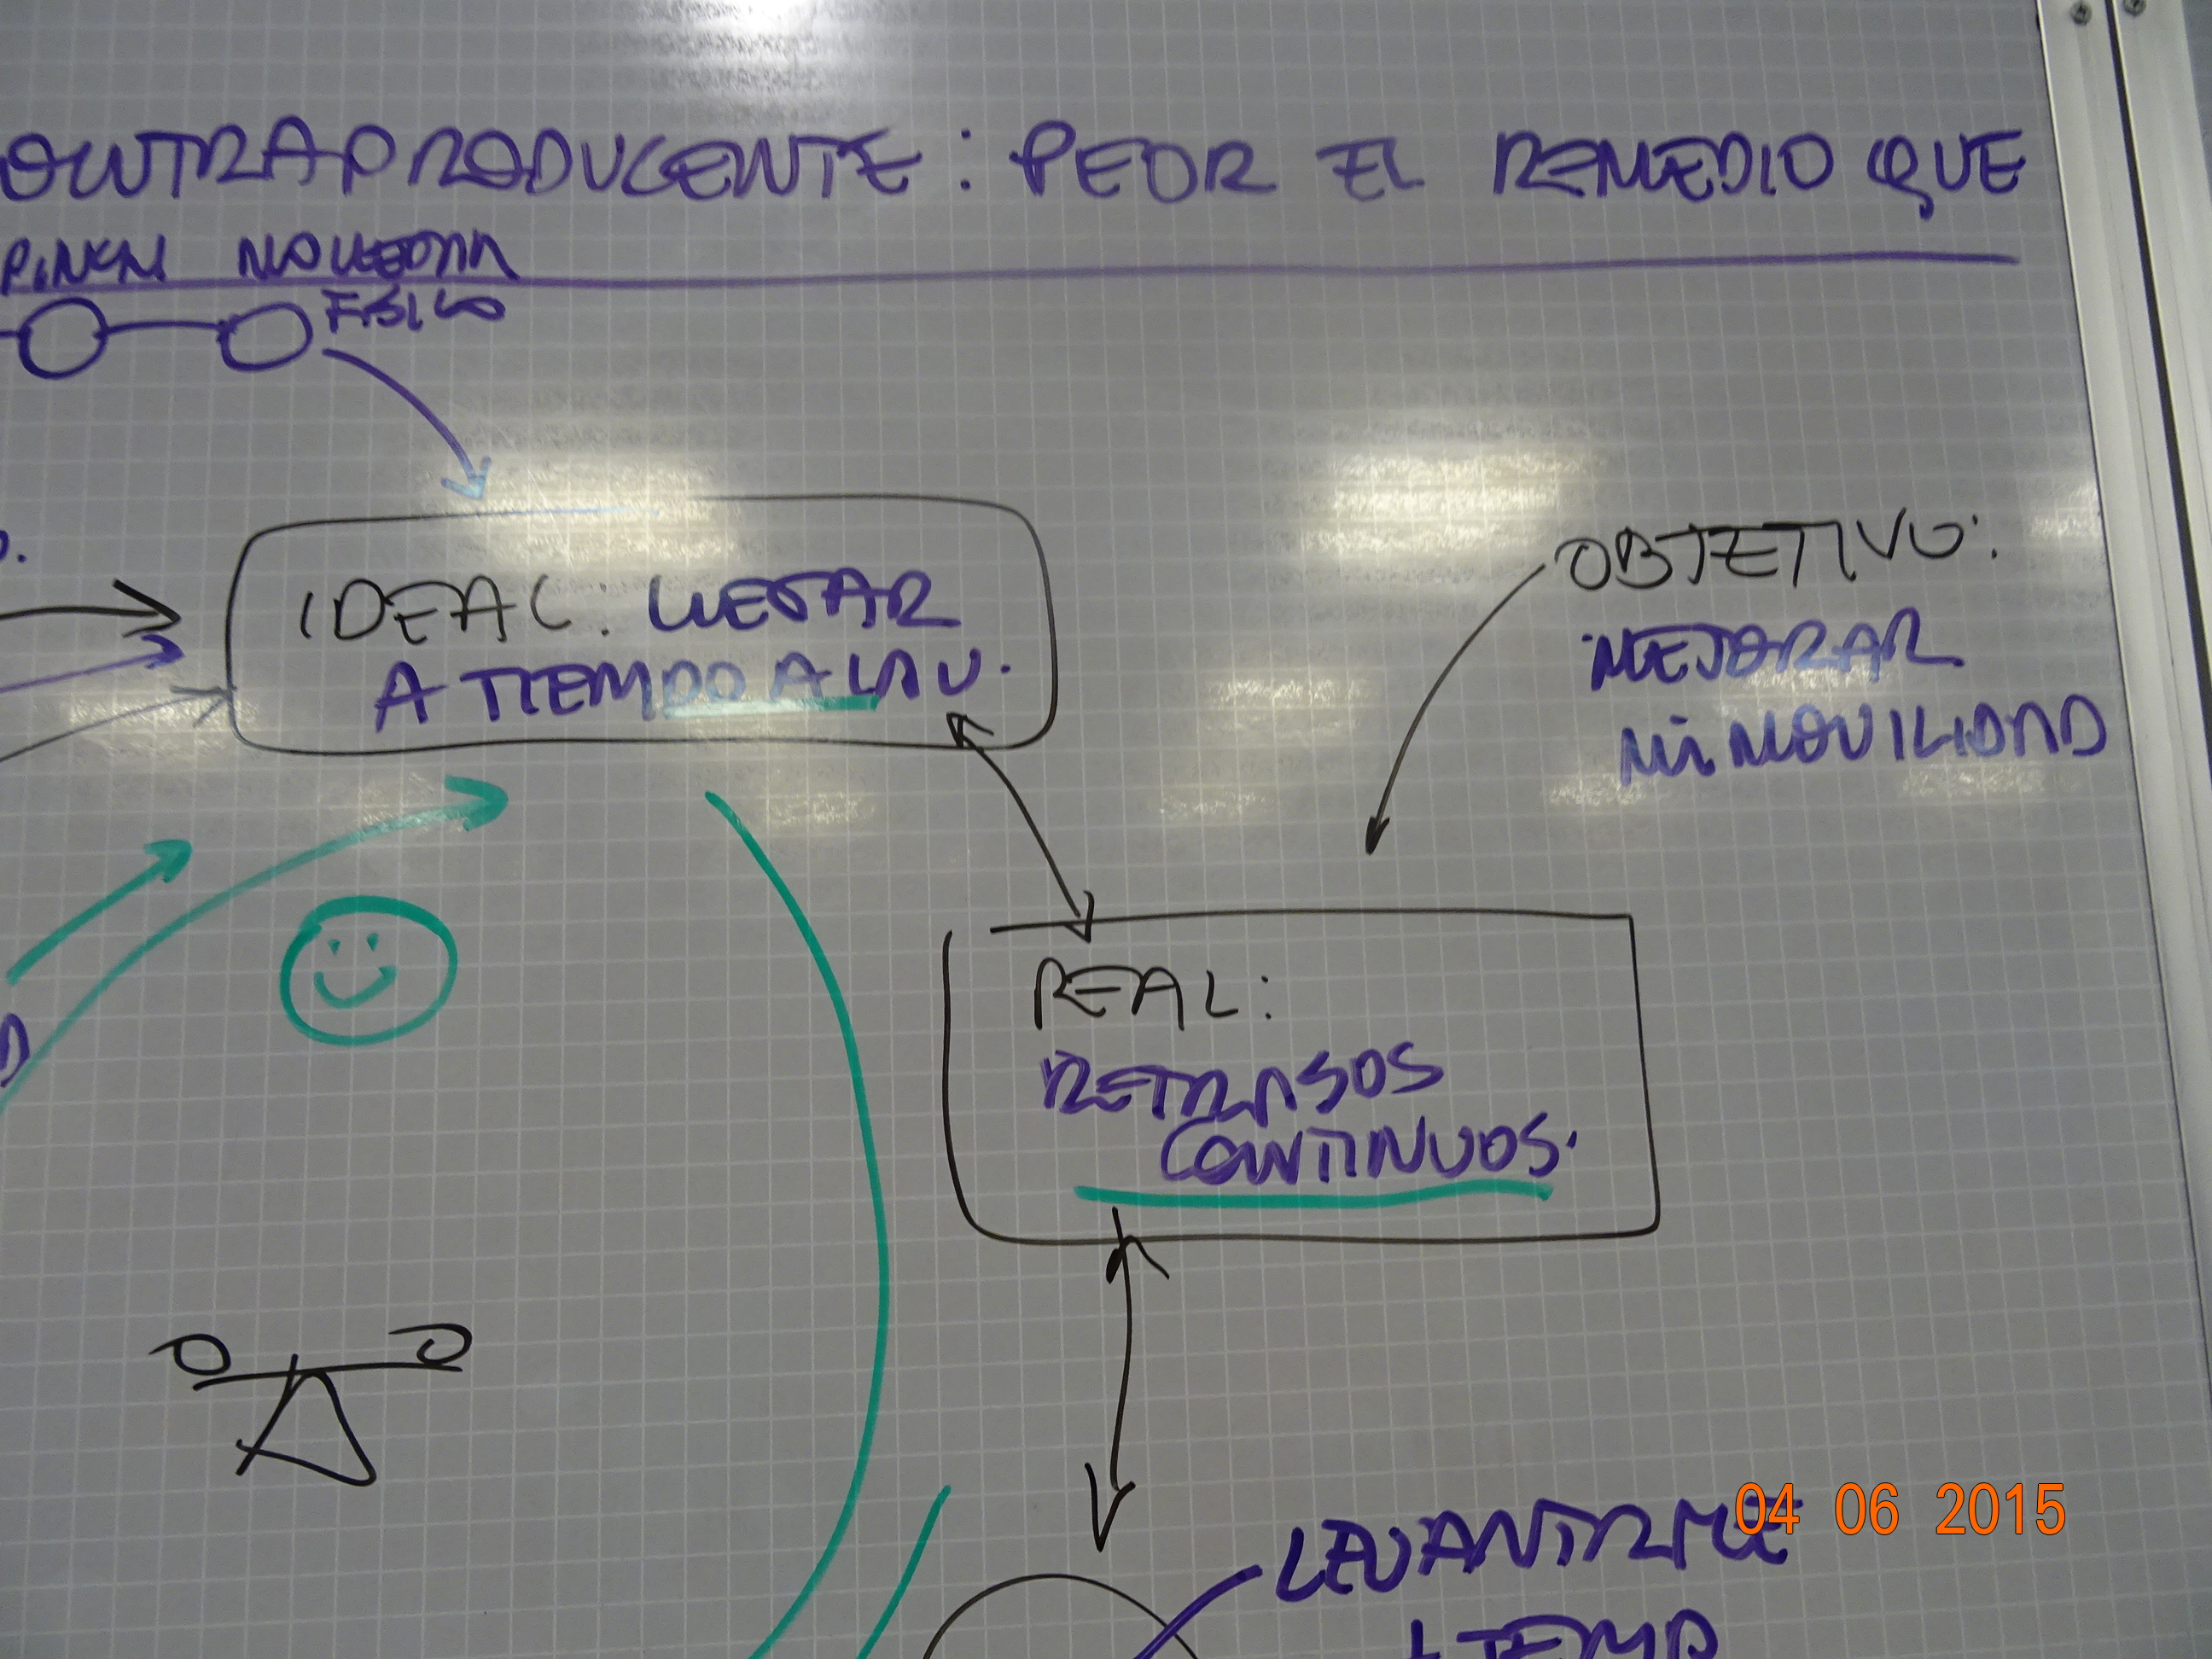 CONTRAPRODUCENTE: PEOR EL REMEDIO QUE
FÍSICO
IDEAL: LLEGAR
A TIEMPO A LA U.
OBJETIVO:
MEJORAR
MI MOVILIDAD
REAL:
RETRASOS
CONTINUOS.
LEVANTARME
+ TEMP
04 06 2015